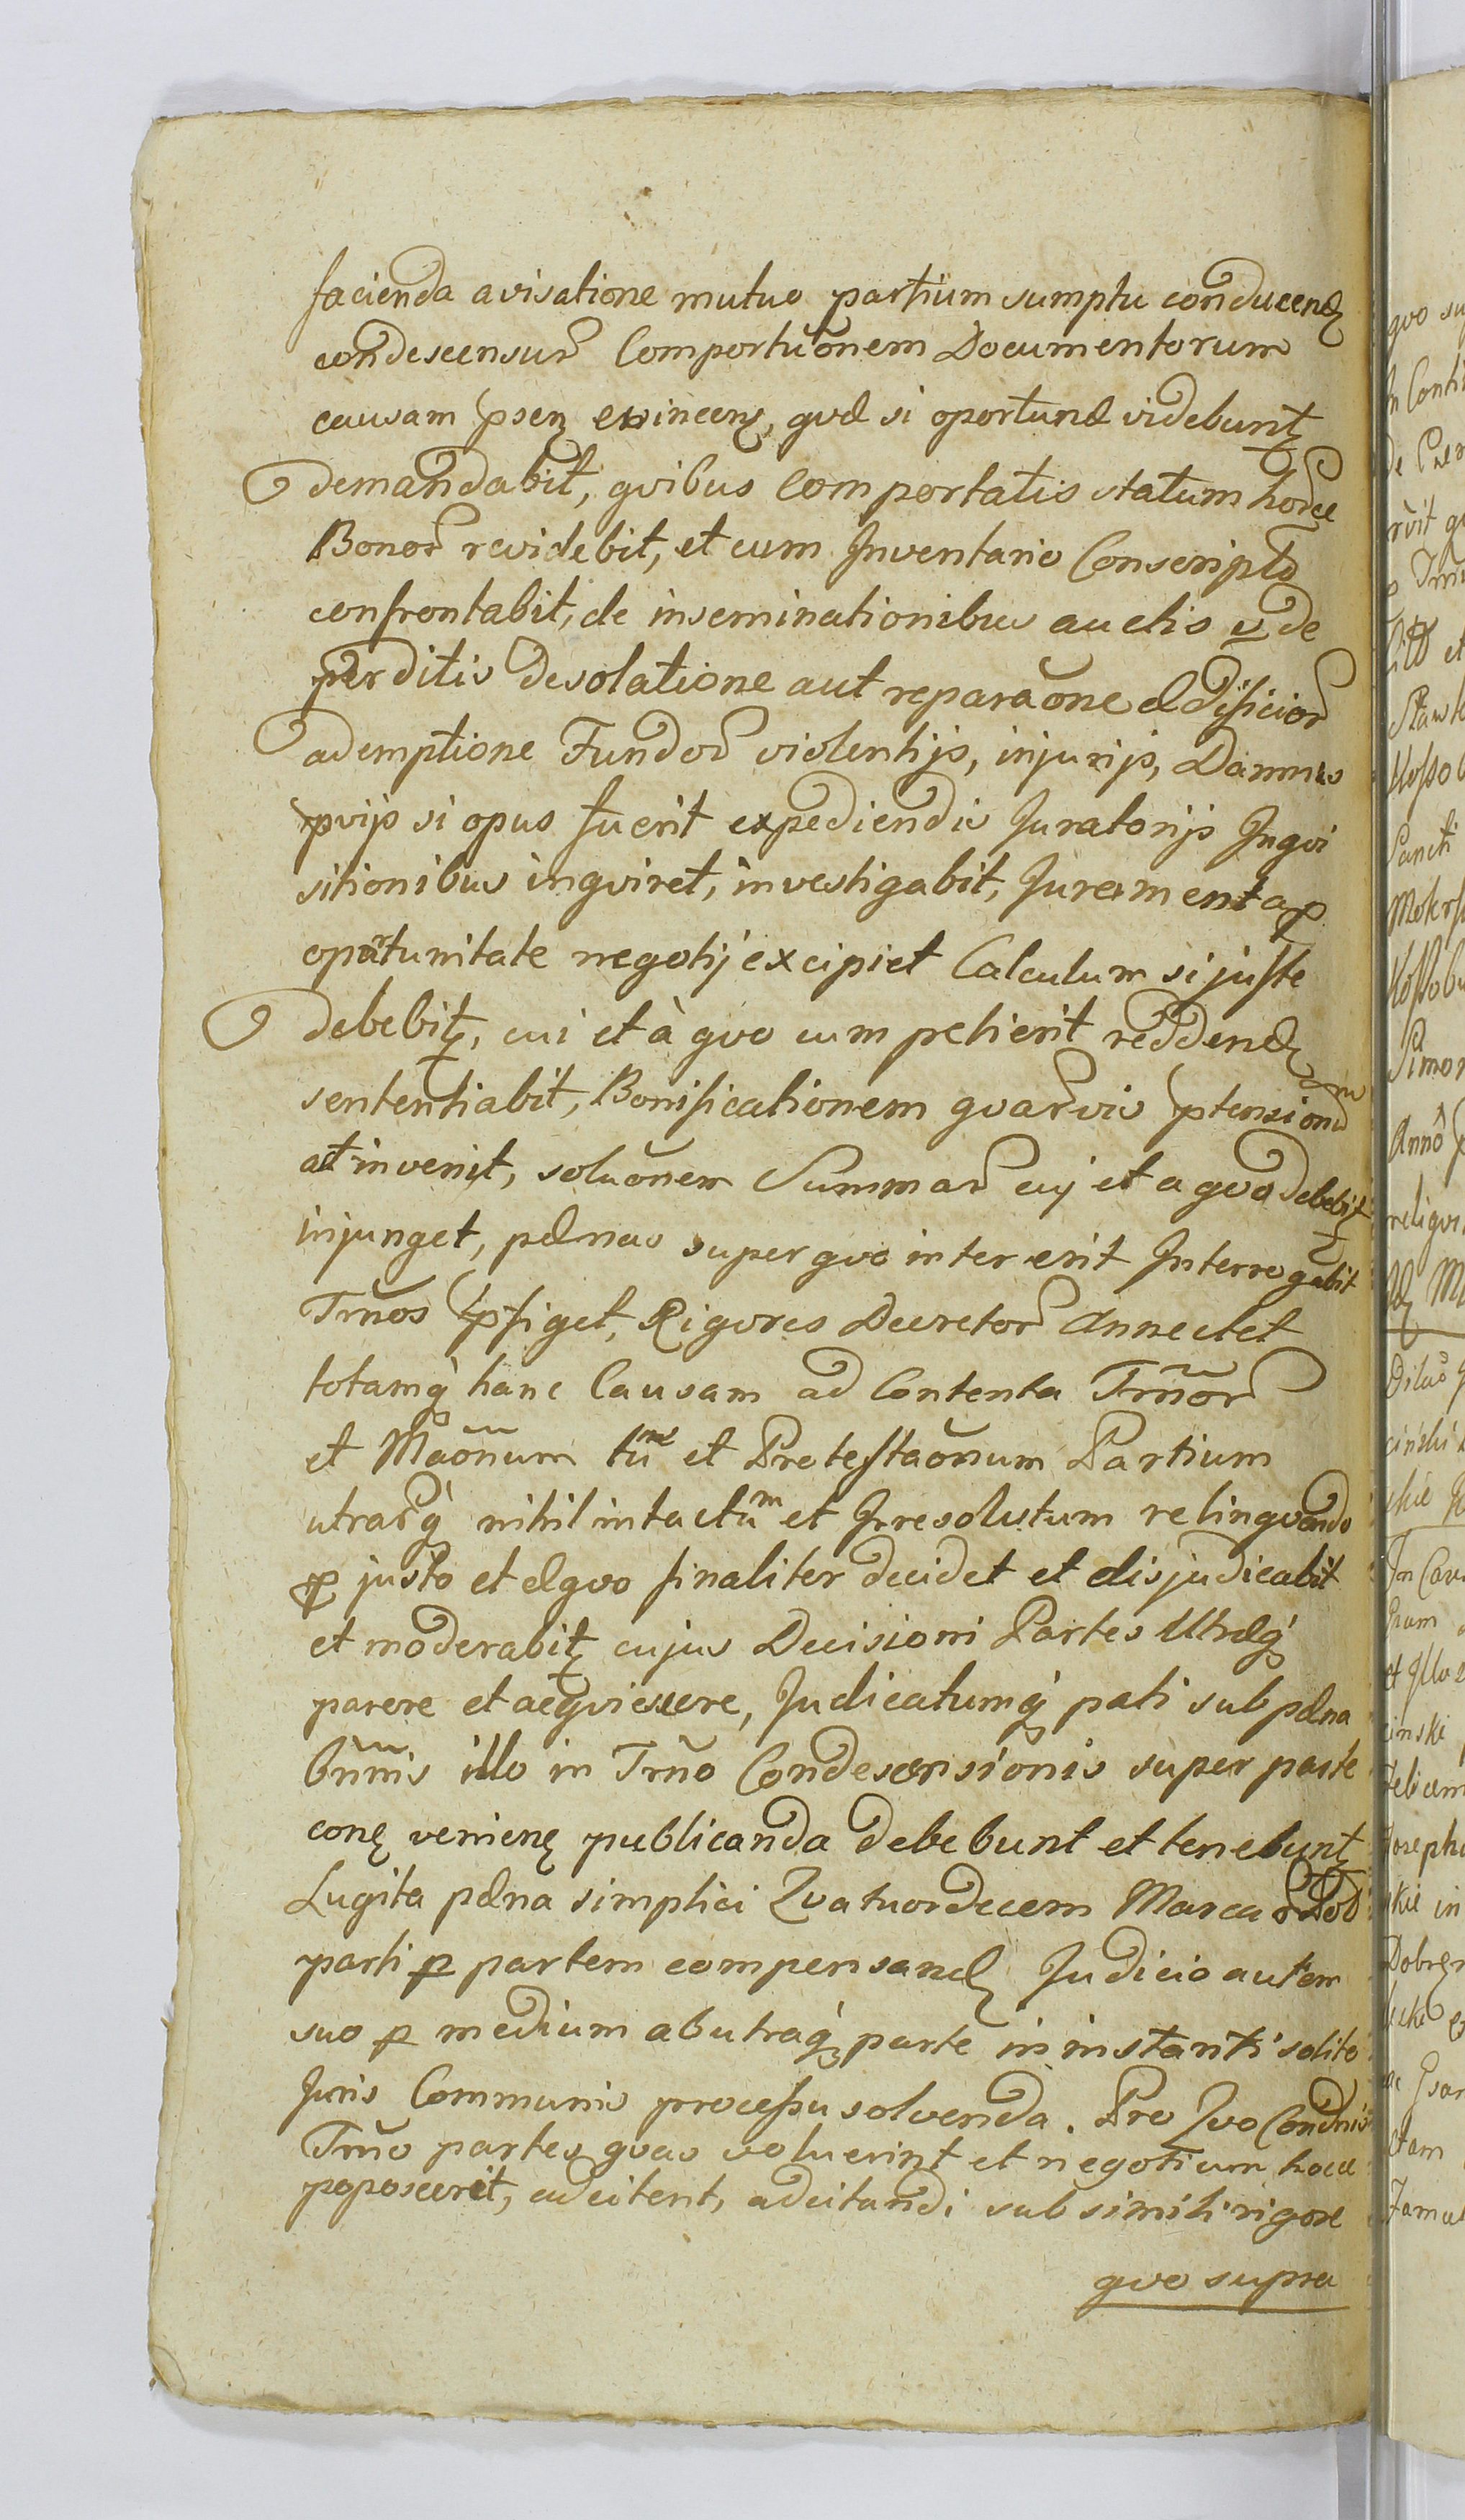 facienda avisatione mutuo partium sumptu conducend
condescensur Comportuonem Documentorum
causam psen evincen, qvæ si oportunæ videbunt
demandabit, qvibus Comportatis statum horce
Bonor revidebit, et cum Inventario Conscripto
confrontabit, de inseminationibus auctis v de
perditis desolatione aut reparaone ædificior
ademptione Fundor violentijs, injurijs, Damnis
pvijs si opus fuerit expediendis Juratorijs Inqvi
sitionibus inqviret, investigabit, Juramenta p
oportunitate negotij excipiet Calculum si juste
debebit, cui et à qvo cum petierit reddend
sententiabit, Bonificationem qvarvis ptensionum
at invenit, soluonem Summar cuj et a qvo debebit
injunget, pænas super qvo intererit Interrogabit
Trnos pfiget, Rigores Decretor Annectet
totamq hanc Causam ad Contenta Trnor
et Maonum tum et Protestaonum Partium
utrarq nihil intactum et Irresolutum relinqvendo
p justo et æqvo finaliter decidet et disjudicabit
et moderabit cujus Decisioni Partes Utræq
parere et acqviescere, Judicatumq pati sub pæna
bnnis illo in Trno Condescensionis super parte
con venien publicanda debebunt et tenebunt
Lugita pæna simplici Qvatuordecem Marcar Pol
parti p partem compensand Judicio autem
suo p medium ab utraq parte in instanti solito
Juris Communis processu solvenda. Pro Qvo Condnis
Trno partes qvas voluerint et negotium hocce
poposcerit, adcitent, adcitandi sub simili rigore
qvo supra